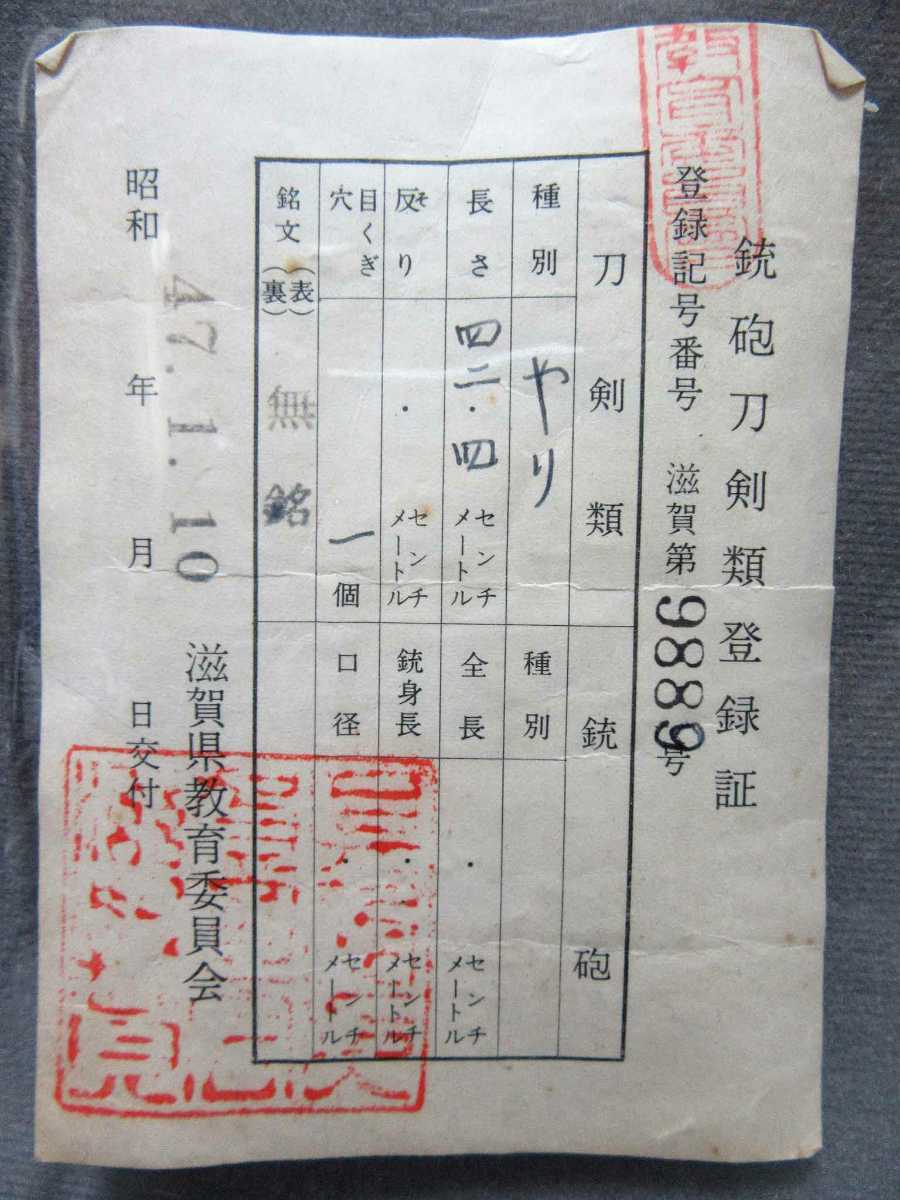 銃砲刀剣類登録証
登録記号番号 滋賀第9889号
刀剣類
銃砲
種別 やり
長さ 四二・四 センチメートル
反り そ ・ センチメートル
目くぎ穴 一個
銘文(表)(裏) 無銘
種別
全長 ・ センチメートル
銃身長 ・ センチメートル
口径 ・ センチメートル
昭和 47.1.10 年 月 日交付
滋賀県教育委員会